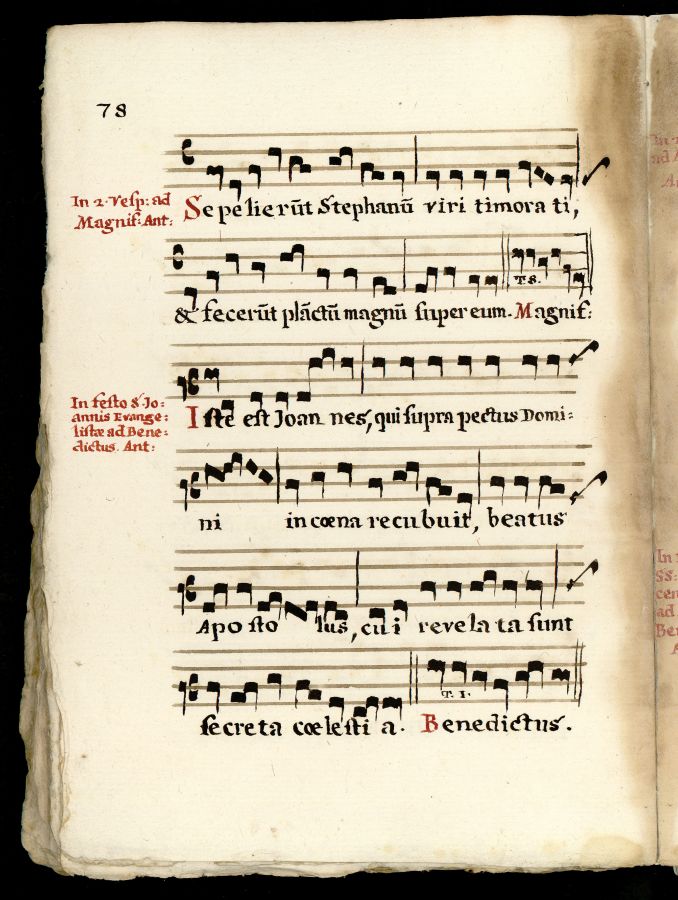 78
In 2. Vesp: ad
Magnif: Ant:
Sepelierūt Stephanū viri timorati,
& fecerūt plāctū magnū super eum. Magnif:
T. 8.
In festo S. Jo-
annis Evange-
listæ ad Bene-
dictus. Ant:
Iste est Joannes, qui supra pectus Domi-
ni in cœna recubuit, beatus
Apostolus, cui revelata sunt
secreta cœlestia. Benedictus.
T. 1.